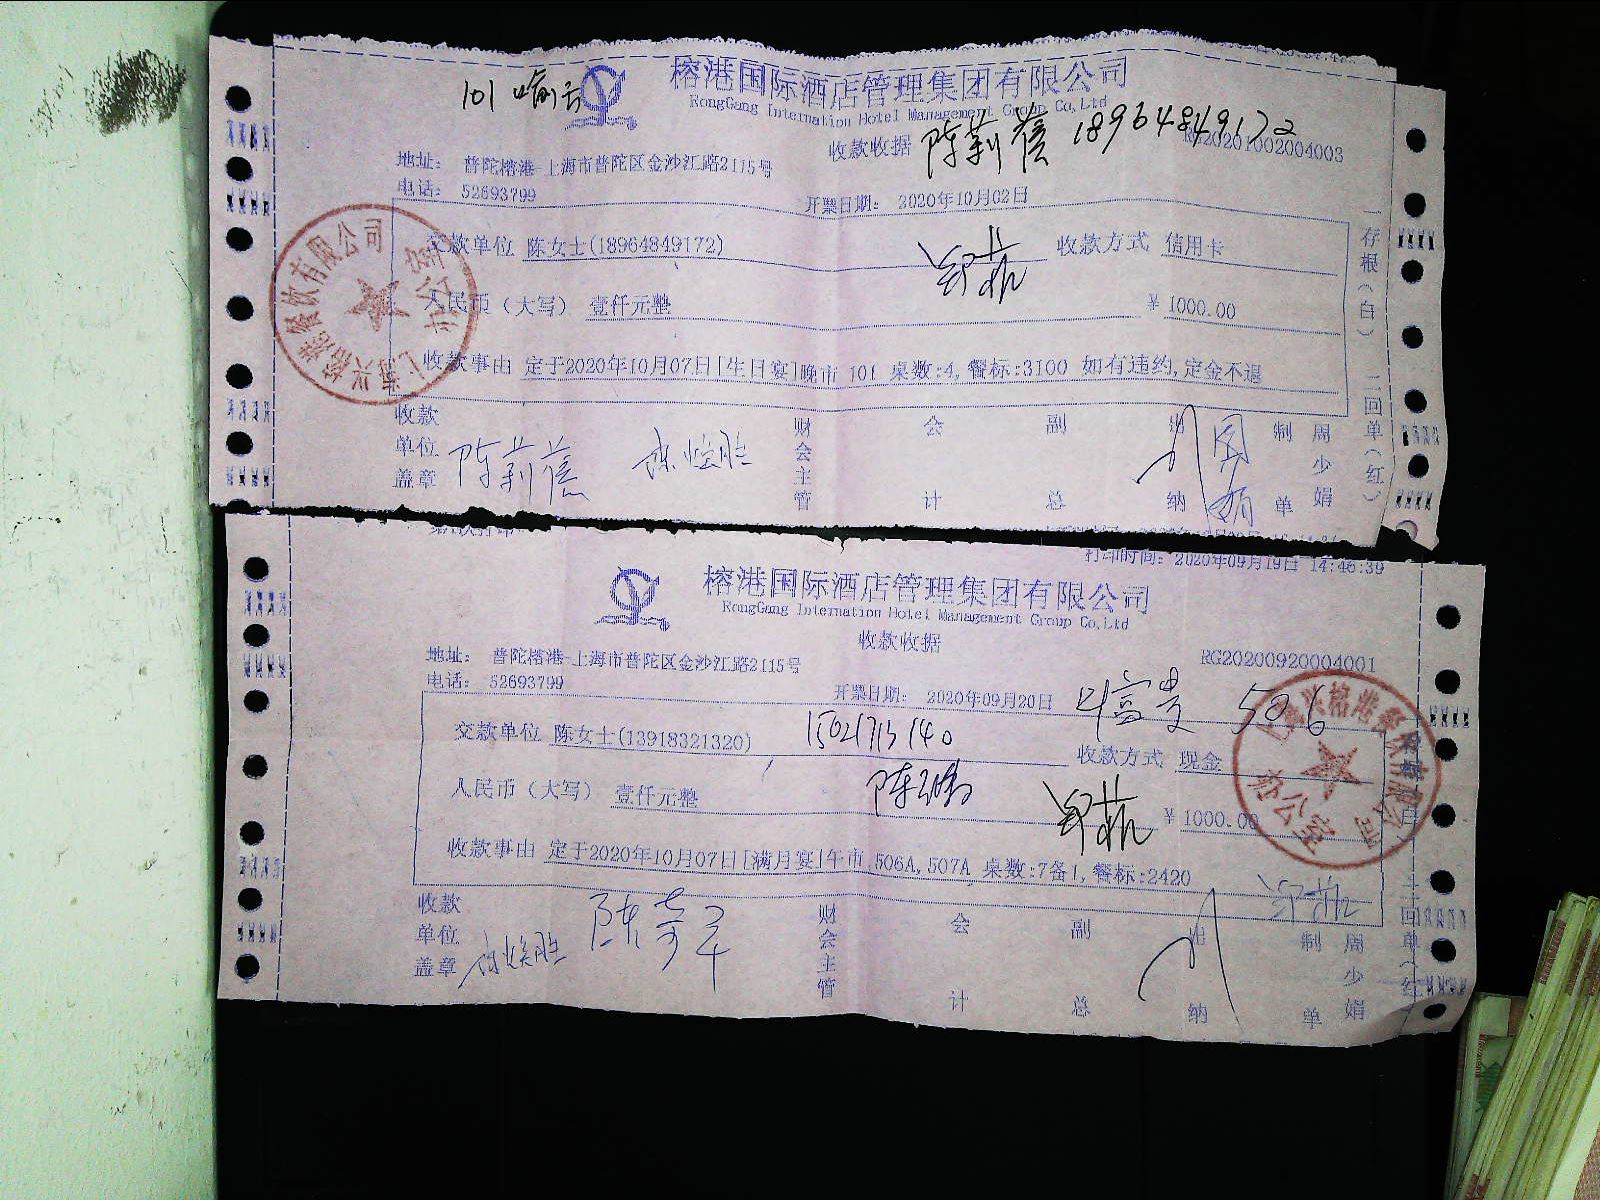 101
榕港国际酒店管理集团有限公司
RongGang Internation Hotel Management Group Co,Ltd
收款收据 陈莉蓓 18964849172
RG20201002004003
地址: 普陀榕港-上海市普陀区金沙江路2115号
电话: 52693799
开票日期: 2020年10月02日
交款单位 陈女士(18964849172) 收款方式 信用卡
人民币(大写) 壹仟元整 ¥ 1000.00
收款事由 定于2020年10月07日[生日宴]晚市 101 桌数:4,餐标:3100 如有违约,定金不退
收款单位盖章 陈莉蓓 财会主管 会计 副总 出纳 制单 周少娟
存根(白) 二回单(红)
上海兴榕港餐饮有限公司
办公室
打印时间: 2020年09月19日 14:46:39
榕港国际酒店管理集团有限公司
RongGang Internation Hotel Management Group Co,Ltd
收款收据
RG20200920004001
地址: 普陀榕港-上海市普陀区金沙江路2115号
电话: 52693799
开票日期: 2020年09月20日 叶富贵 506
交款单位 陈女士(13918321320) 15021713140 收款方式 现金
人民币(大写) 壹仟元整 ¥ 1000.00
收款事由 定于2020年10月07日[满月宴]午市 506A,507A 桌数:7备1,餐标:2420
收款单位盖章 财会主管 会计 副总 出纳 制单 周少娟
上海兴榕港餐饮有限公司
办公室